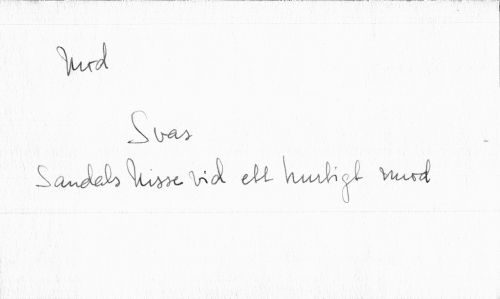 Mod
Svas
Sandals Nisse vid ett hurtigt mod